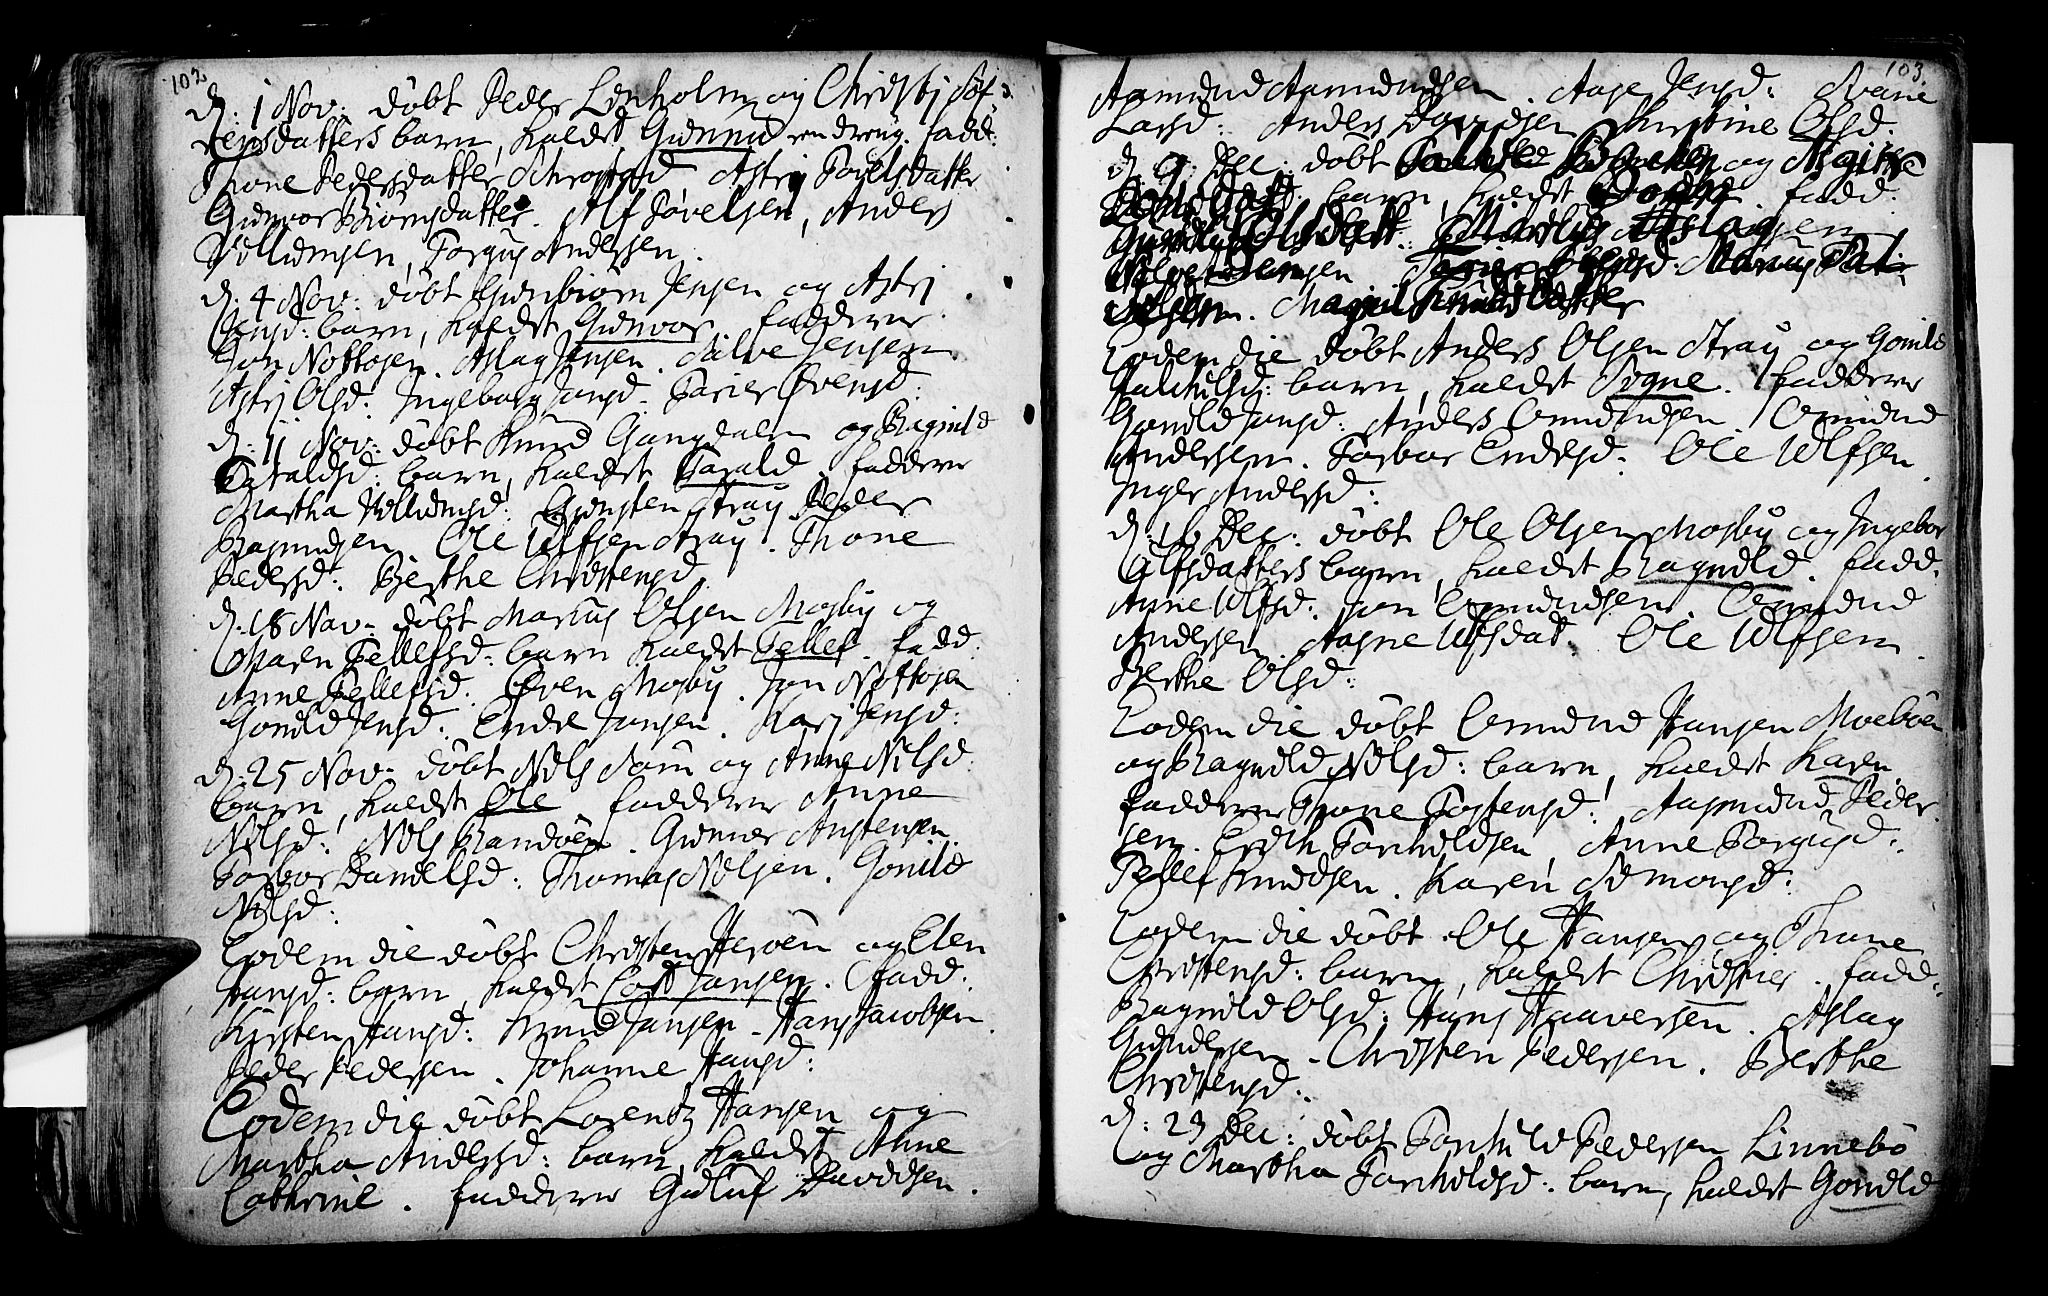 102
d: 1 Nov: döbt Peder Lenholm og Christj Sÿf-
rensdatters barn, kaldet Gunnu en dreng. fadd:
Thone Pedersdatter Astrj Povelsdatter
Gunvor Biörnsdatter. Alf Povelsen, Anders
Villumsen, Torgus Andersen
d: 4 Nov: döbt Gunbiörn Jensen og Astrj
Jensd: barn, kaldet Gunvor. faddere
Jon Nottosen. Aslag Jensen. Salve Jensen
Astrj Olsd: Ingeborg Jansd. Torier Övensd:
d: 11 Nov: döbt Knud Gangdalen og Ragnild
Taraldsd: barn, kaldet Tarald. faddere
Martha Villumsd: Gunsten Stray Peder
Rasmusen. Ole Ulfsen Stray. Thone
Pedersd: Berthe Christensd.
d: 18 Nov. döbt Marcus Olsen Mosby og
Maren Tellefsd: barn kaldet Tellef. fadd:
Anne Tellefsd. Even Mosby. Jon Nottosen
Gonild Jensd: Endre Jansen. Karj Jensd:
d: 25 Nov. döbt Nils Sam og Anne Nilsd:
barn, kaldet Ole. faddere Anne
Nilsd: Nils Randöen. Gunner Anstensen.
Torbor Danielsd: Thomas Nilsen. Gonild
Nilsd:
Eodem die döbt Christen Heröen og Elen
Hansd: barn, kaldet Cort Jansen. fadd:
Kirsten Hansd: Knud Jansen. Hans Jacobsen.
Peder Pedersen. Johanne Hansd:
Eodem die döbt Lorentz Hansen og
Martha Andersd: barn, kaldet Anne
Cathrine. faddere Guluf Davidsen.
103.
Aamund Aamundsen. Aase Jensd: Stine
Larsd: Anders Davidsen Christine Olsd.
d. 9. Dec: döbt og
barn, kaldet fadd:
Aslagsen

Magnil Knudsdatter
Eodem die döbt Anders Olsen Stray og Gonild
barn, kaldet Signe. faddere
Gonild Jansd: Anders Omundsen. Omund
Andersen. Torbor Endresd: Ole Ulfsen.
Inger Andersd:
d: 16 Dec: döbt Ole Olsen Mosby og Ingebor
Ulfsdatters barn, kaldet Ragnild. fadd.
Anne Ulfsd: Jon Omundsen. Omund
Andersen. Aasne Ulfsdat. Ole Ulfsen.
Berthe Olsd:
Eodem die döbt Omund Hansen Moeböen
og Ragnild Nilsd: barn, kaldet Karen
faddere Thone Tostensd: Aasmund Peder-
sen. Erich Torkildsen, Anne Torgusd:
Tellef Knudsen. Karen Simonsd:
Eodem die döbt Ole Hansen og Thone
Christensd: barn, kaldet Christner. fadd:
Ragnild Olsd: Hans Haaversen. Aslag
Gundersen. Christen Pedersen. Berthe
Christensd:
d: 23 Dec: döbt Torkild Pedersen Linnebö
og Martha Torkildsd: barn, kaldet Gonild